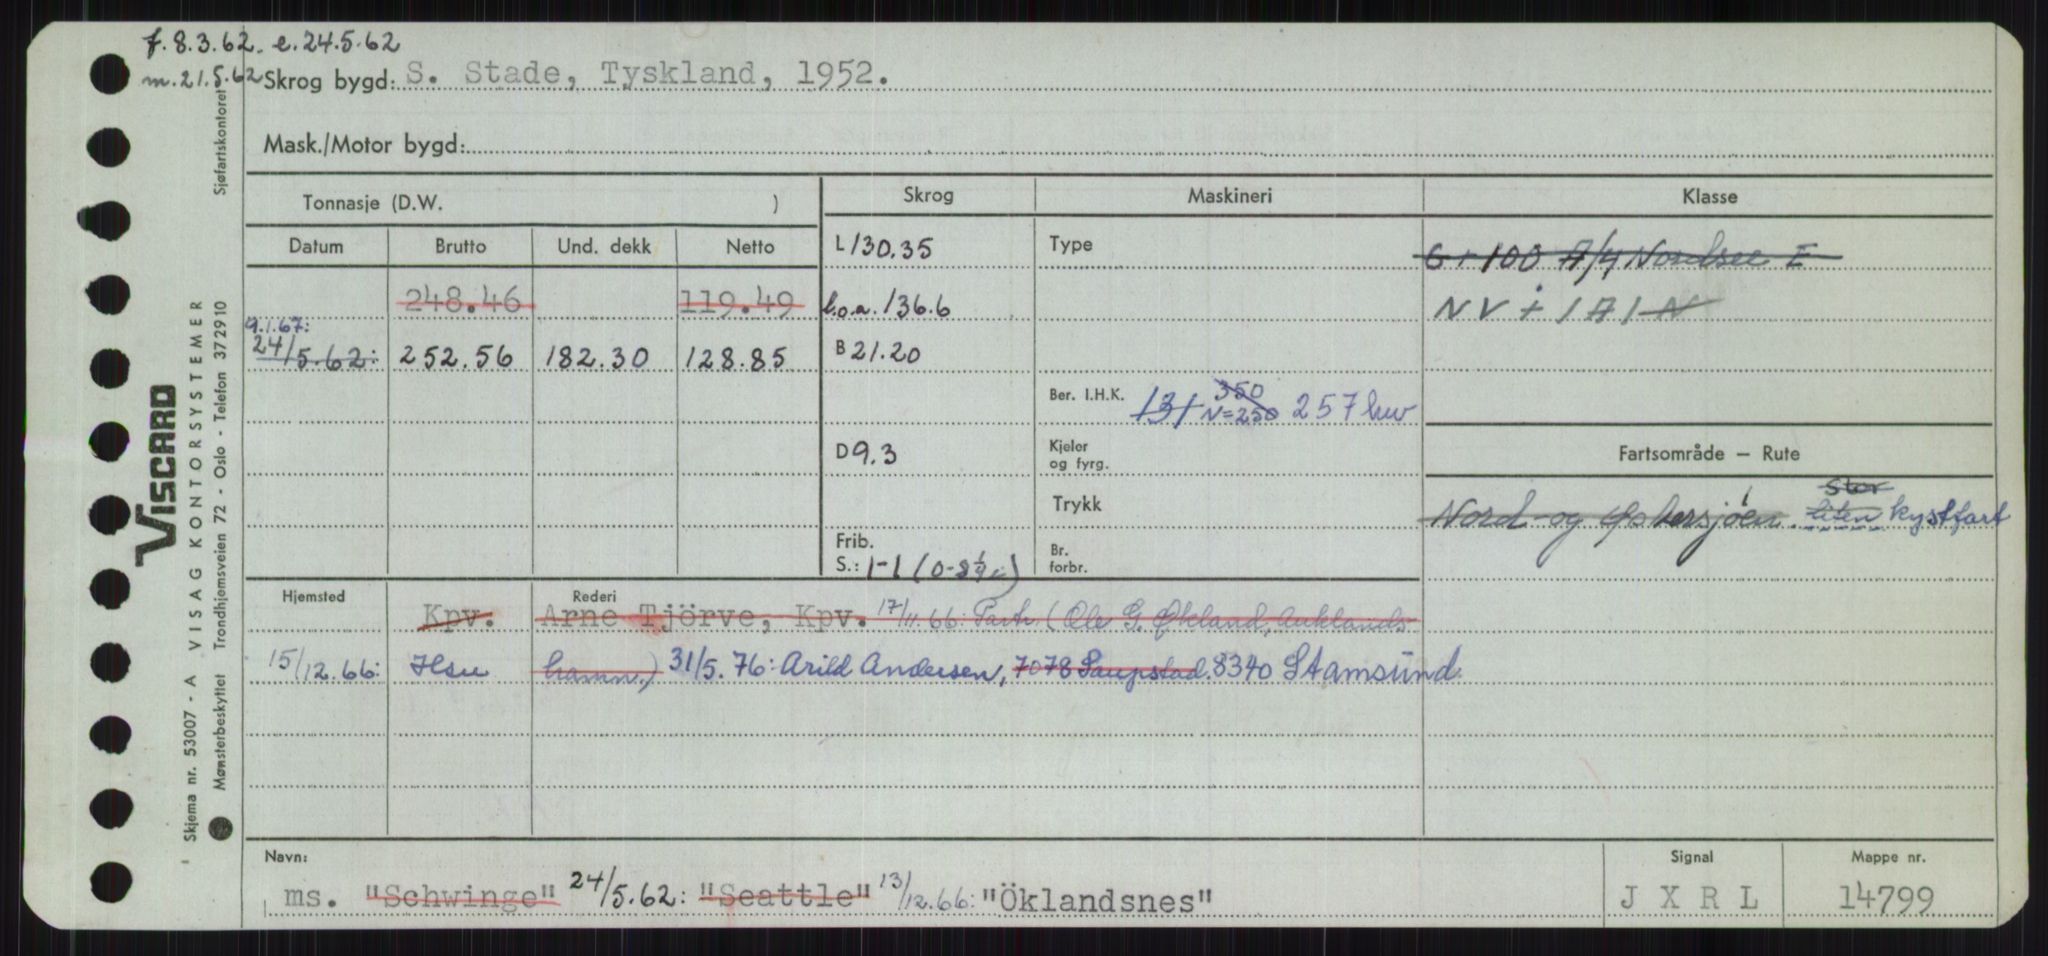 f. 8.3.62. e. 24.5.62
m. 21.5.62 Skrog bygd: S. Stade, Tyskland, 1952.
Mask./Motor bygd:
Tonnasje (D.W. )
Skrog
Maskineri
Klasse
Datum Brutto Und. dekk Netto
L 130.35
Type
G + 100 A/4 Nordsee E
248.46 119.49
l.o.a. 136.6
NV + 1A1 N
9.1.67:
24/5.62: 252.56 182.30 128.85
B 21.20
Ber. I.H.K. 131 350 N=250 257 huv
D 9.3
Kjeler
og fyrg.
Fartsområde — Rute
Trykk
stor
Nord og Østersjøen. liten kystfart
Frib.
S.: 1-1 (0-8¼)
Br.
forbr.
Hjemsted Rederi
Kpv. Arne Tjörve, Kpv. 17/11.66: Partr. (Ole G. Økland, Auklands
15/12.66: Hsu hamn.) 31/5.76: Arild Andersen, 7078 Saupstad. 8340 Stamsund
Navn:
Signal
Mappe nr.
ms. "Schwinge" 24/5.62: "Seattle" 13/12.66: "Öklandsnes"
J X R L
14799
VISCARD
Skjema nr. 53007 - A VISAG KONTORSYSTEMER
Mønsterbeskyttet Trondhjemsveien 72 - Oslo - Telefon 372910 Sjøfartskontoret